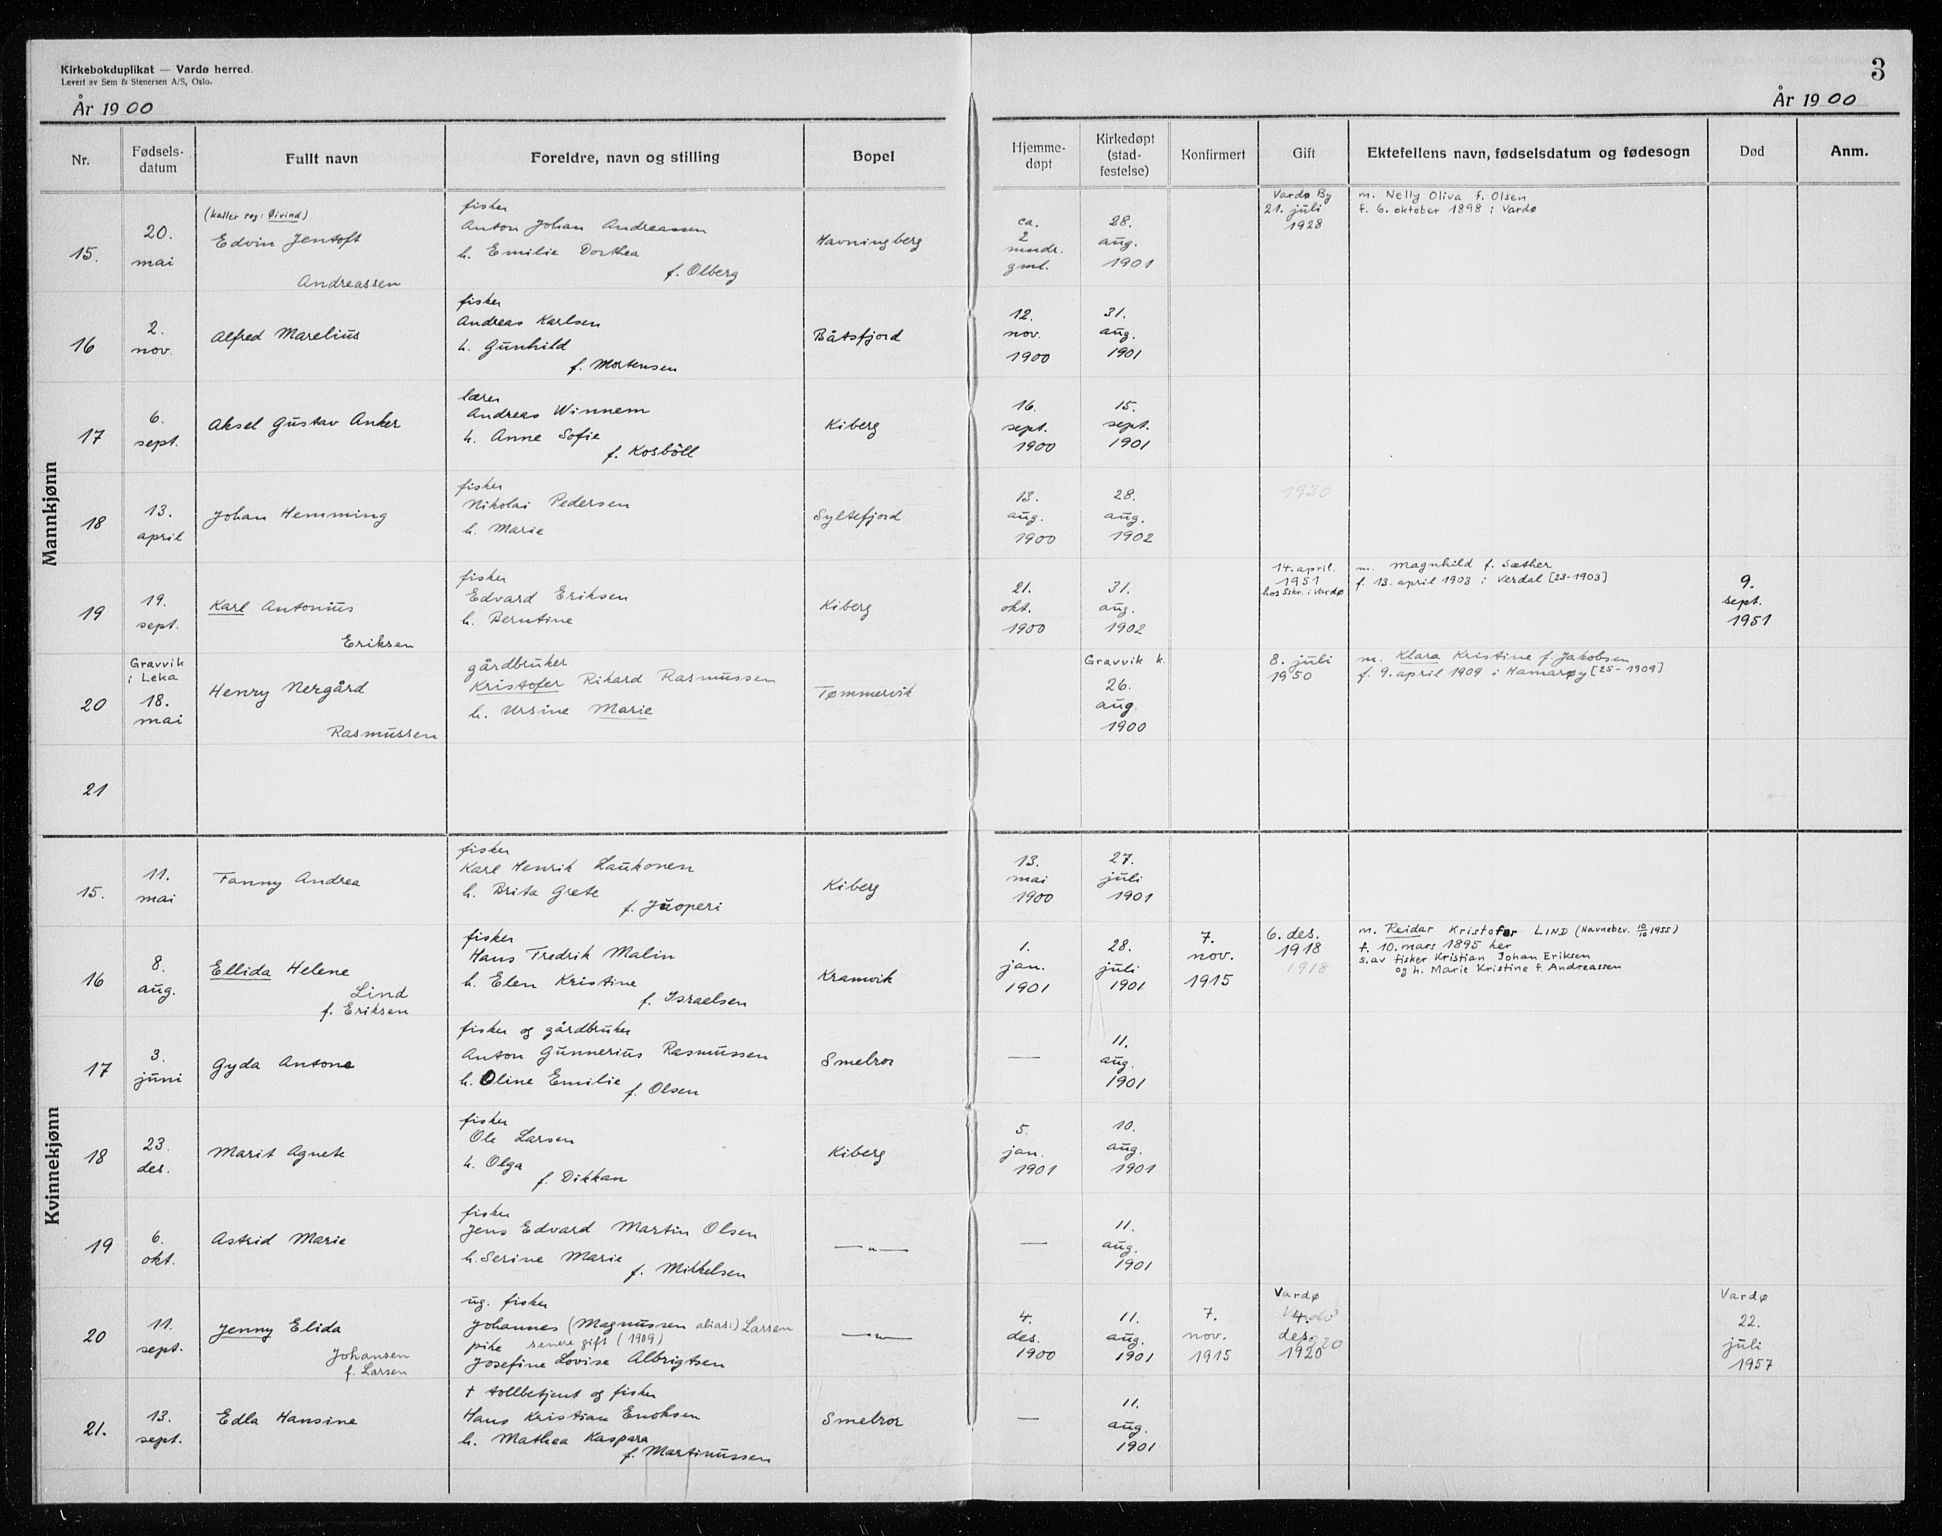 Kirkebokduplikat — Vardø herred.
Levert av Sem & Stenersen A/S, Oslo.
År 1900
3
År 1900
Nr.
Fødsels-
datum
Fullt navn
Foreldre, navn og stilling
Bopel
Hjemme-
døpt
Kirkedøpt
(stad-
festelse)
Konfirmert
Gift
Ektefellens navn, fødselsdatum og fødesogn
Død
Anm.
Mannkjønn
15.
20.
mai
(kaller seg: Øivind)
Edvin Jentoft
Andreassen
fisker
Anton Johan Andreassen
h. Emilie Dorthea
f. Olberg
Havningberg
ca.
2
mndr.
gml.
28.
aug.
1901
Vardø By
21. juli
1928
m. Nelly Oliva f. Olsen
f. 6. oktober 1898 i Vardø
16
2.
nov.
Alfred Marelius
fisker
Andreas Karlsen
h. Gunhild
f. Mortensen
Båtsfjord
12.
nov.
1900
31.
aug.
1901
17
6.
sept.
Aksel Gustav Anker
lærer
Andreas Winnem
h. Anne Sofie
f. Kosböll
Kiberg
16.
sept.
1900
15.
sept.
1901
18
13.
april
Johan Hemming
fisker
Nikolai Pedersen
h. Marie
Syltefjord
13.
aug.
1900
28.
aug.
1902
1930
19
19.
sept.
Karl Antonius
Eriksen
fisker
Edvard Eriksen
h. Berntine
Kiberg
21.
okt.
1900
31.
aug.
1902
14. april.
1951
hos Sskr. i Vardø
m. Magnhild f. Sæther
f. 13. april 1903 i Verdal [23-1903]
9.
sept.
1951
20
Gravvik
i Leka
18.
mai
Henry Nergård
Rasmussen
gårdbruker
Kristofer Rikard Rasmussen
h. Ursine Marie
Tømmervik
Gravvik k.
26.
aug.
1900
8. juli
1950
m. Klara Kristine f. Jakobsen
f. 9. april 1909 i Hamarøy [25-1909]
21
Kvinnekjønn
15.
11.
mai
Fanny Andrea
fisker
Karl Henrik Laukonen
h. Brita Grete
f. Juoperi
Kiberg
13.
mai
1900
27.
juli
1901
16
8.
aug.
Ellida Helene
Lind
f. Eriksen
fisker
Hans Fredrik Malin
h. Elen Kristine
f. Israelsen
Kramvik
1.
jan.
1901
28.
juli
1901
7.
nov.
1915
6. des.
1918
1918
m. Reidar Kristofer LIND (Navnebev. 10/10 1955)
f. 10. mars 1895 her
s. av fisker Kristian Johan Eriksen
og h. Marie Kristine f. Andreassen
17
3.
juni
Gyda Antone
fisker og gårdbruker
Anton Gunnerius Rasmussen
h. Oline Emilie
f. Olsen
Smelror
—
11.
aug.
1901
18
23.
des.
Marit Agnete
fisker
Ole Larsen
h. Olga
f. Dikkan
Kiberg
5.
jan.
1901
10.
aug.
1901
19
6.
okt.
Astrid Marie
fisker
Jens Edvard Martin Olsen
h. Serine Marie
f. Mikkelsen
—"—
—
11.
aug.
1901
20
11.
sept.
Jenny Elida
Johansen
f. Larsen
ug. fisker
Johannes (Magnussen alias:) Larsen
pike senere gift (1909)
Josefine Lovise Albrigtsen
—"—
4.
des.
1900
11.
aug.
1901
7.
nov.
1915
Vardø
4.
des.
1920
Vardø
22.
juli
1957
21.
13.
sept.
Edla Hansine
† tollbetjent og fisker
Hans Kristian Enoksen
h. Mathea Kaspara
f. Martinussen
Smelror
—
11.
aug.
1901